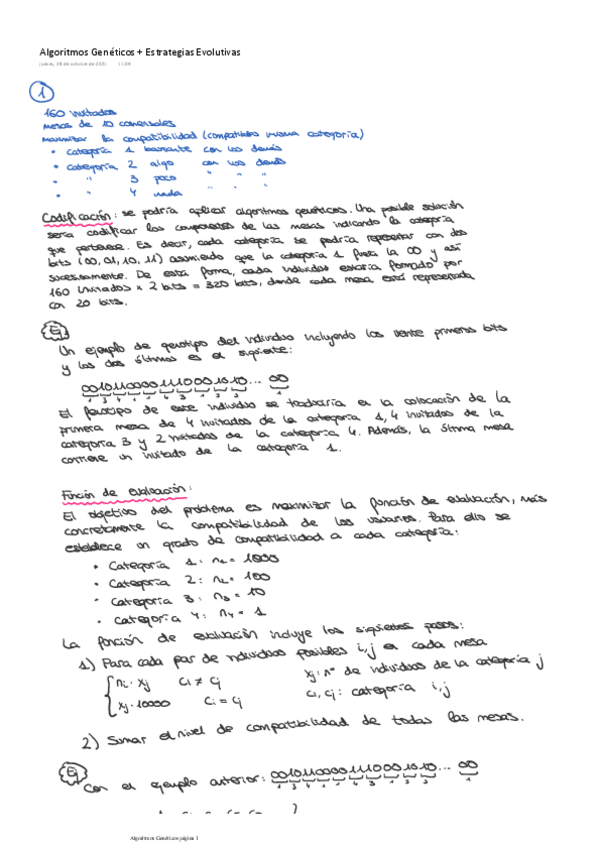 Algoritmos Genéticos + Estrategias Evolutivas
jueves, 28 de octubre de 2021 11:09
1
160 invitados
mesas de 10 comensales
maximizar la compatibilidad (compatibles misma categoría)
• categoría 1 bastante con los demás
• categoría 2 algo con los demás
• " 3 poco " " "
• " 4 nada " " "
Codificación: se podría aplicar algoritmos genéticos. Una posible solución
sería codificar los componentes de las mesas indicando la categoría
que pertenece. Es decir, cada categoría se podría representar con dos
bits (00, 01, 10, 11) asumiendo que la categoría 1 fuera la 00 y así
sucesivamente. De esta forma, cada individuo estaría formado por
160 invitados x 2 bits = 320 bits, donde cada mesa está representada
con 20 bits.
Ej
Un ejemplo de genotipo del individuo incluyendo los veinte primeros bits
y los dos últimos es el siguiente:
00101100001110001010... 00
1 3 4 1 1 4 3 1 3 3 1
El fenotipo de este individuo se traduciría en la colocación de la
primera mesa de 4 invitados de la categoría 1, 4 invitados de la
categoría 3 y 2 invitados de la categoría 4. Además, la última mesa
contiene un invitado de la categoría 1.
Función de evaluación:
El objetivo del problema es maximizar la función de evaluación, más
concretamente la compatibilidad de los usuarios. Para ello se
establece un grado de compatibilidad a cada categoría:
• Categoría 1: n₁ = 1000
• Categoría 2: n₂ = 100
• Categoría 3: n₃ = 10
• Categoría 4: n₄ = 1
La función de evaluación incluye los siguientes pasos:
1) Para cada par de individuos posibles i,j en cada mesa
{ nᵢ · xⱼ cᵢ ≠ cⱼ xⱼ: nº de individuos de la categoría j
xⱼ · 10000 cᵢ = cⱼ cᵢ, cⱼ: categoría i,j
2) Sumar el nivel de compatibilidad de todas las mesas.
Ej
Con el ejemplo anterior: 00101100001110001010... 00
Algoritmos Genéticos página 1